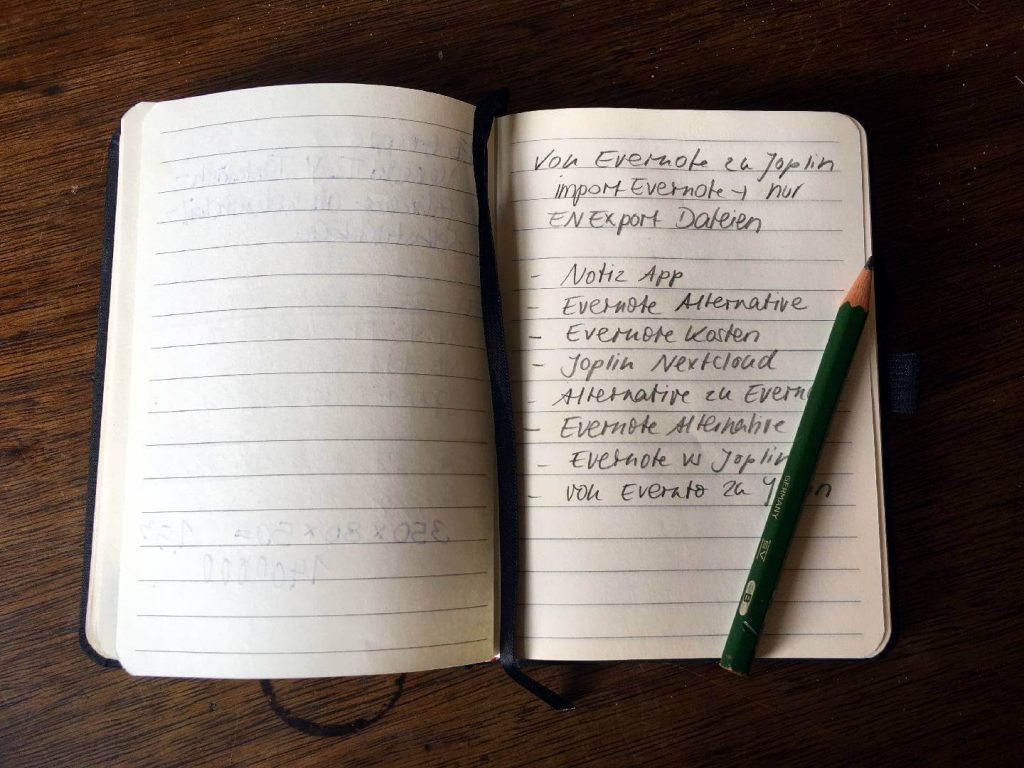 350 x 80 x 50 =
1400000
Von Evernote zu Joplin
import Evernote → nur
EN Export Dateien
- Notiz App
- Evernote Alternative
- Evernote Kosten
- Joplin NextCloud
- Alternative zu Evern
- Evernote Alternative
- Evernote vs Joplin
- von Everato zu J in
GERMANY
B